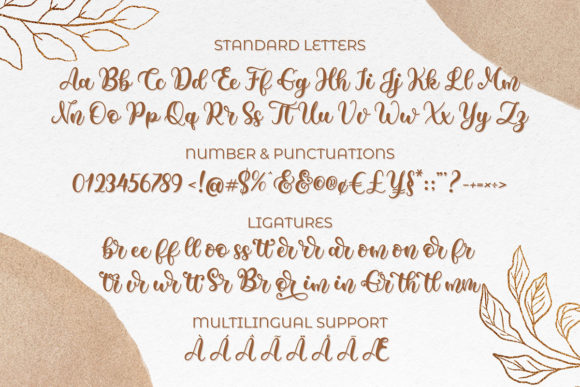 STANDARD LETTERS
Aa Bb Cc Dd Ee Ff Gg Hh Ii Jj Kk Ll Mm
Nn Oo Pp Qq Rr Ss Tt Uu Vv Ww Xx Yy Zz
NUMBER & PUNCTUATIONS
0123456789 <!@#$%^&
LIGATURES
br ee ff ll oo ss tt er rr ar om on or fr
ur wr tt Sr Br or im in Er th tl mm
MULTILINGUAL SUPPORT
À Á Â Ã Ä Å Ā Æ